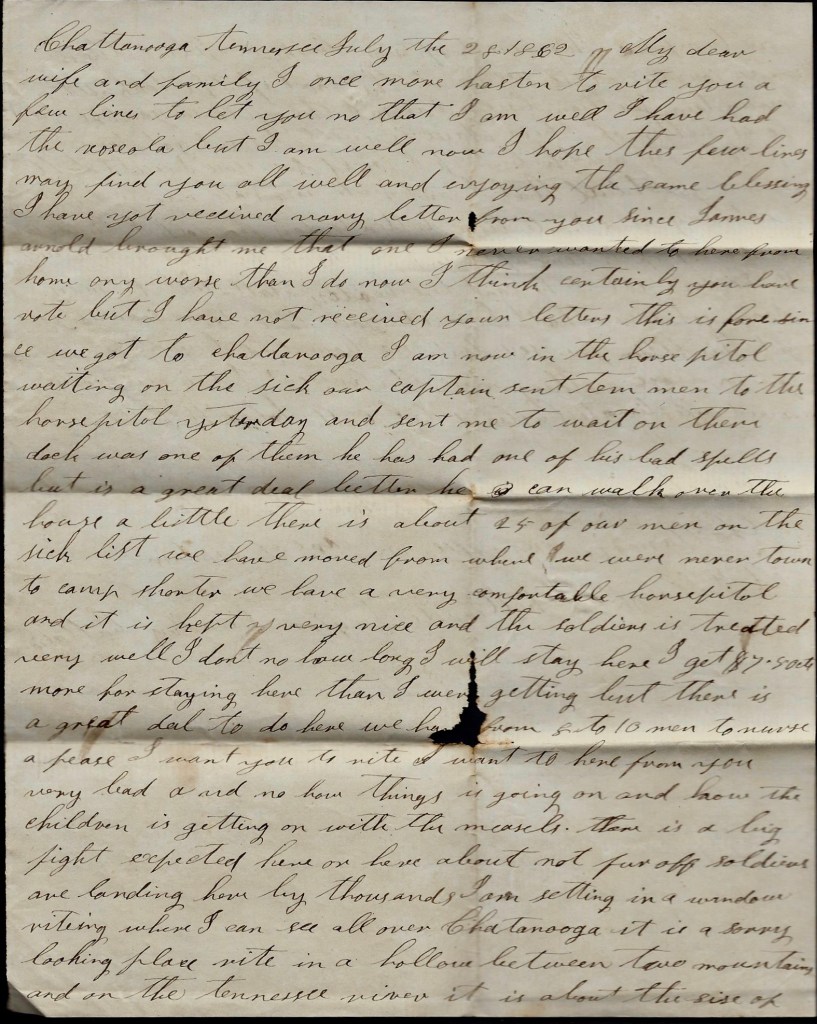 Chattanooga tennessee July the 28 1862 My dear
wife and family I once more hasten to rite you a
few lines to let you no that I am well I have had
the roseola but I am well now I hope thes few lines
may find you all well and enjoying the same blessing
I have not received nary letter from you since James
arnold brought me that one I never wanted to here from
home any worse than I do now I think certainly you have
rote but I have not received your letters this is fore sin
ce we got to chattanooga I am now in the horsepitol
waiting on the sick our captain sent tem men to the
horsepitol ysterday and sent me to wait on them
dock was one of them he has had one of his bad spells
but is a great deal better he can walk over the
house a little there is about 25 of our men on the
sick list we have moved from where we were never town
to camp shorter we have a very comfortable horsepitol
and it is kept very nice and the soldiers is treated
very well I dont no how long I will stay here I get $7.50cts
more for staying here than I were getting but there is
a great deal to do here we have from 8 to 10 men to nurse
a pease I want you to rite I want to here from you
very bad and no how things is going on and how the
children is getting on with the measels. there is a big
fight expected here or here about not fur off soldiers
are landing here by thousands I am setting in a window
riteing where I can see all over Chatanooga it is a sorry
looking place rite in a hollow between two mountains
and on the tennessee river it is about the sise of